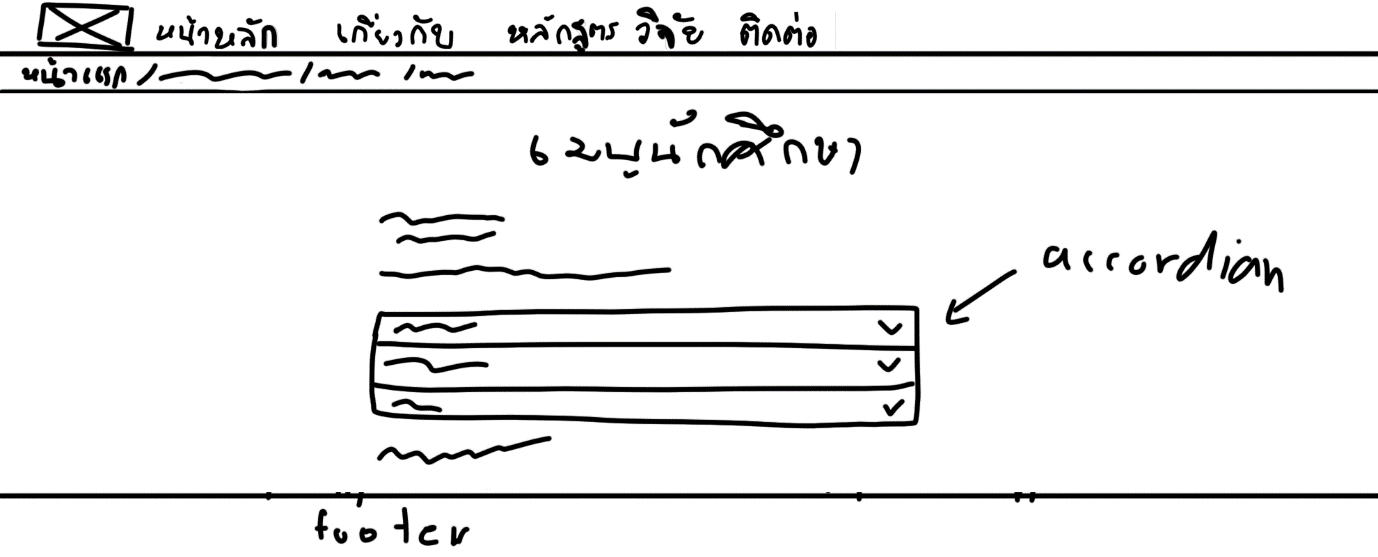 หน้าหลัก เกี่ยวกับ หลักสูตร วิจัย ติดต่อ
หน้าแรก / / /
accordian
footer